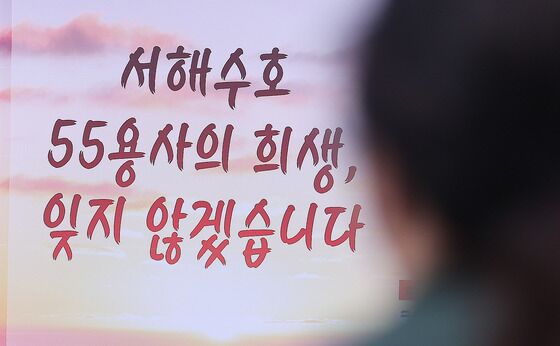 서해수호
55용사의 희생,
잊지 않겠습니다